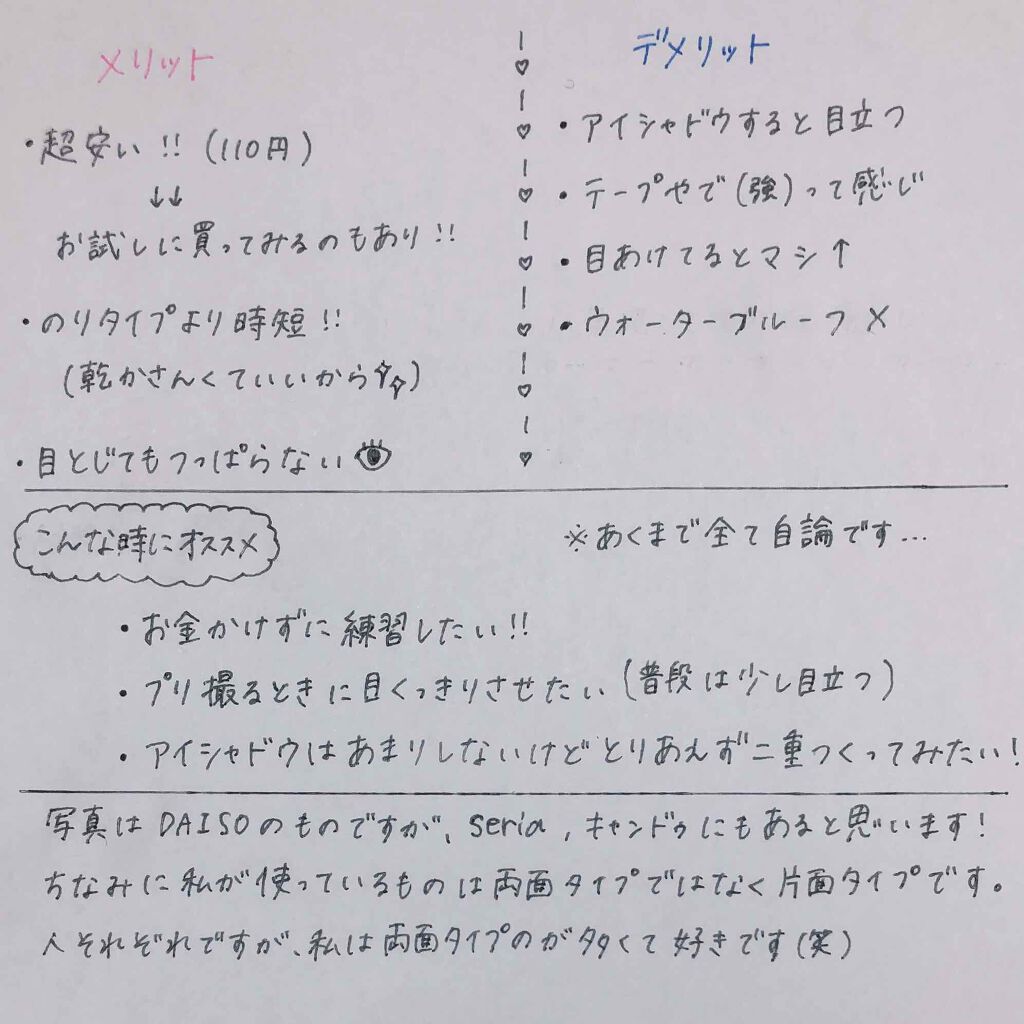 メリット
・超安い!!(110円)
↓↓
お試しに買ってみるのもあり!!
・のりタイプより時短!!
(乾かさんくていいから✨)
・目とじてもつっぱらない👁
デメリット
・アイシャドウすると目立つ
・テープやで(強)って感じ
・目あけてるとマシ↑
・ウォータープルーフ×
こんな時にオススメ
※あくまで全て自論です…
・お金かけずに練習したい!!
・プリ撮るときに目くっきりさせたい(普段は少し目立つ)
・アイシャドウはあまりしないけどとりあえず二重つくってみたい!
写真はDAISOのものですが、seria,キャンドゥにもあると思います!
ちなみに私が使っているものは両面タイプではなく片面タイプです。
人それぞれですが、私は両面タイプのが多くて好きです(笑)